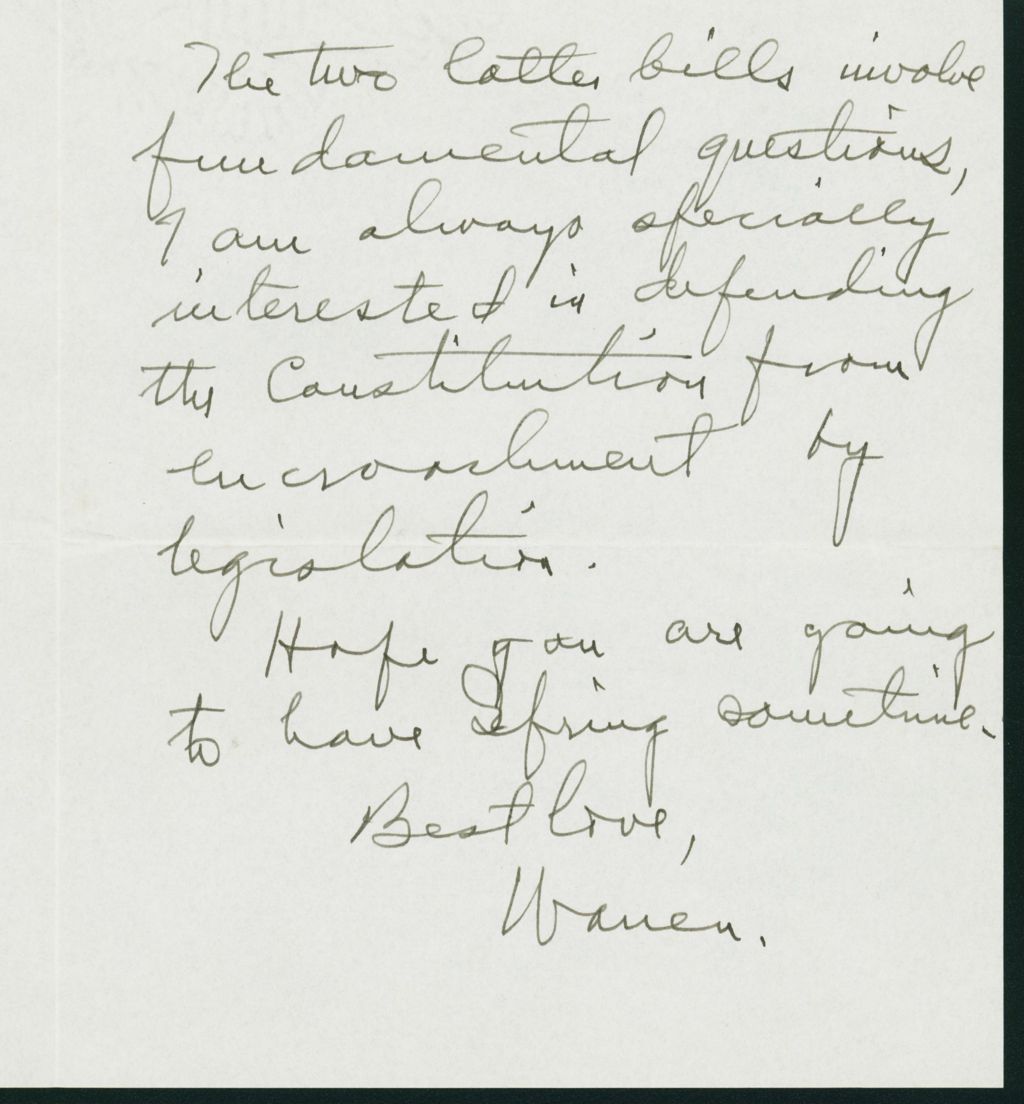 The two latter bills involve
fundamental questions,
I am always specially
interested in defending
the Constitution from
encroachment by
legislation.
Hope you are going
to have Spring sometime.
Best love,
Warren.